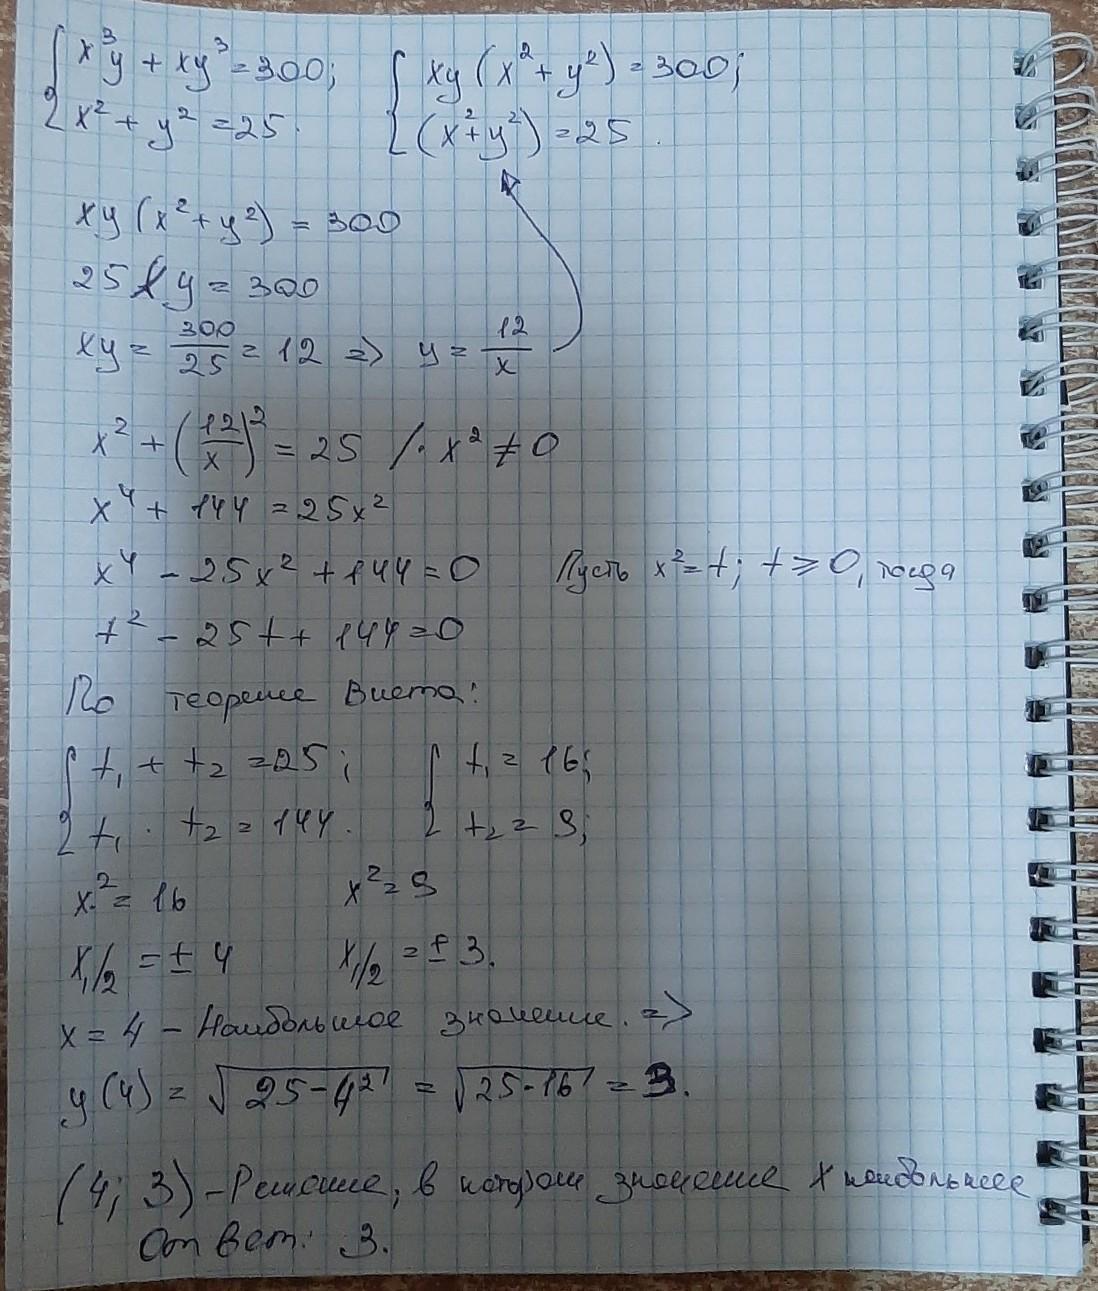 { x³y + xy³ = 300; { xy (x² + y²) = 300;
{ x² + y² = 25. { (x² + y²) = 25.
xy (x² + y²) = 300
25 xy = 300
xy = 300/25 = 12 => y = 12/x
x² + (12/x)² = 25 / · x² ≠ 0
x⁴ + 144 = 25x²
x⁴ - 25x² + 144 = 0 Пусть x² = t; t ≥ 0, тогда
t² - 25t + 144 = 0
По теореме Виета:
{ t₁ + t₂ = 25; { t₁ = 16;
{ t₁ · t₂ = 144. { t₂ = 9;
x² = 16 x² = 9
x₁/₂ = ± 4 x₁/₂ = ± 3.
x = 4 - Наибольшое значение. =>
y(4) = √(25-4²) = √(25-16) = 3.
(4; 3) - Решение, в котором значение x наибольшее
Ответ: 3.